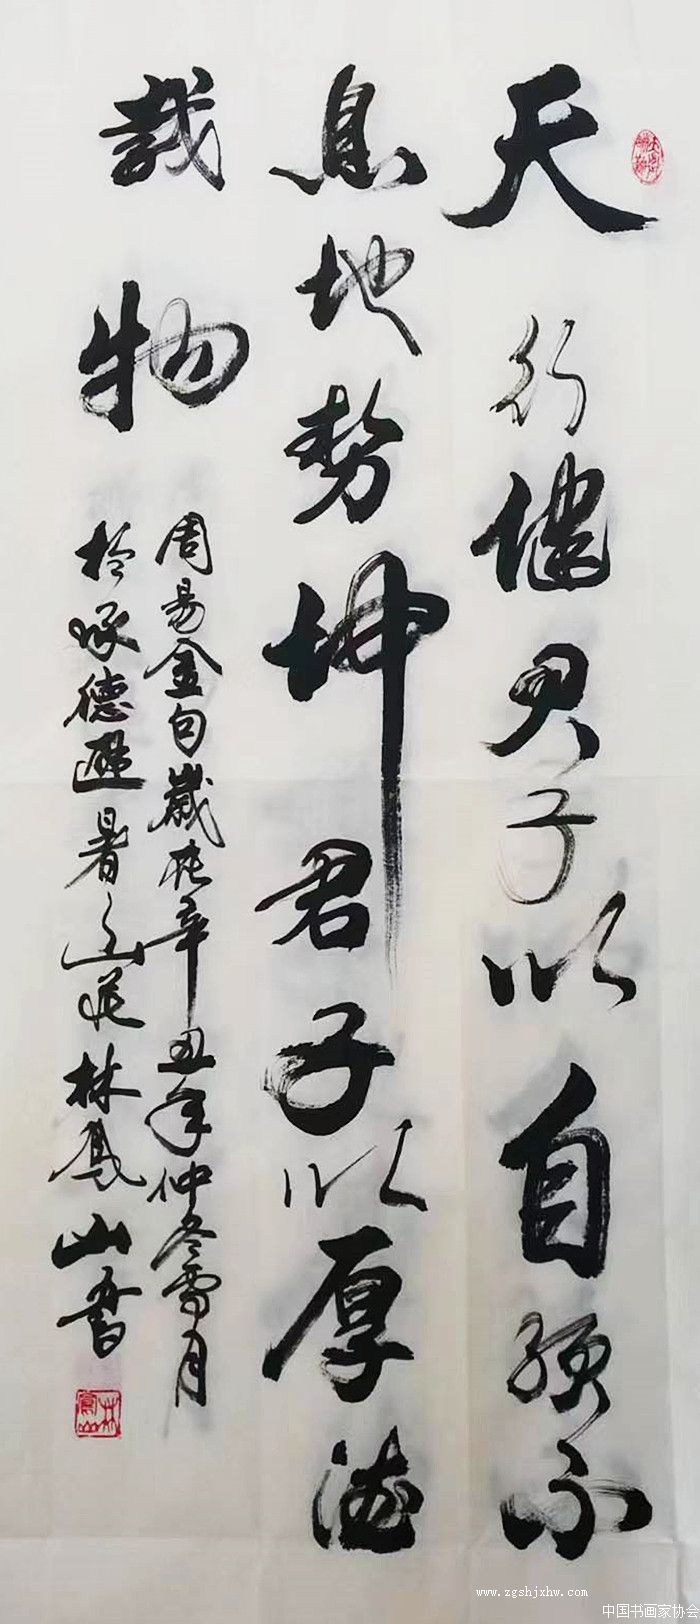 天行健君子以自强不
息地势坤君子以厚德
载物
周易金句歲在辛丑年仲冬雪月
於承德避暑山莊林鳳山書
林鳳山
www.zgshjxhw.com
中国书画家协会